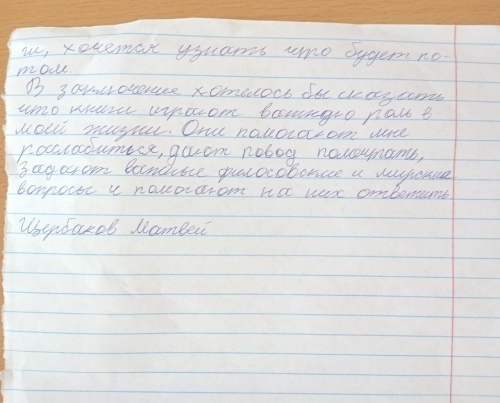 ги, хочется узнать что будет по-
том.
В заключение хотелось бы сказать
что книги играют важную роль в
моей жизни. Они помогают мне
расслабиться, дают повод помечтать,
задают важные философские и мирские
вопросы и помогают на них ответить.
Щербаков Матвей